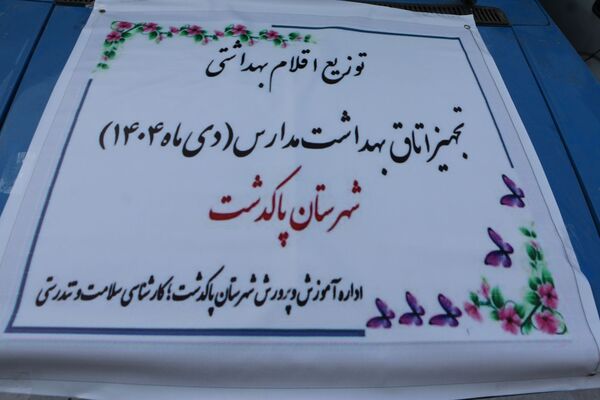 توزیع اقلام بهداشتی
تجهیز اتاق بهداشت مدارس (دی ماه ۱۴۰۴)
شهرستان پاکدشت
اداره آموزش و پرورش شهرستان پاکدشت؛ کارشناسی سلامت و تندرستی